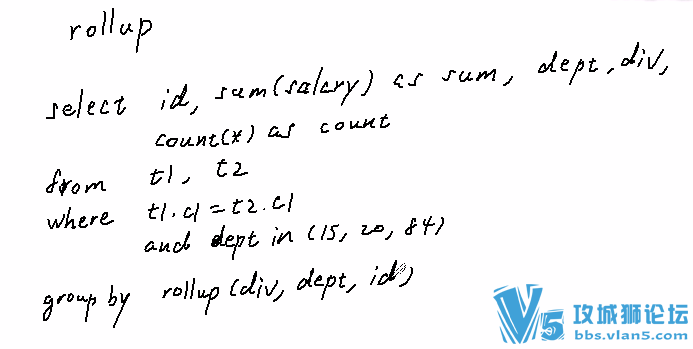 rollup
select id, sum(salary) as sum, dept, div,
count(*) as count
from t1, t2
where t1.c1 = t2.c1
and dept in (15, 20, 84)
group by rollup (div, dept, id)
V5 攻城狮论坛
bbs.vlan5.com